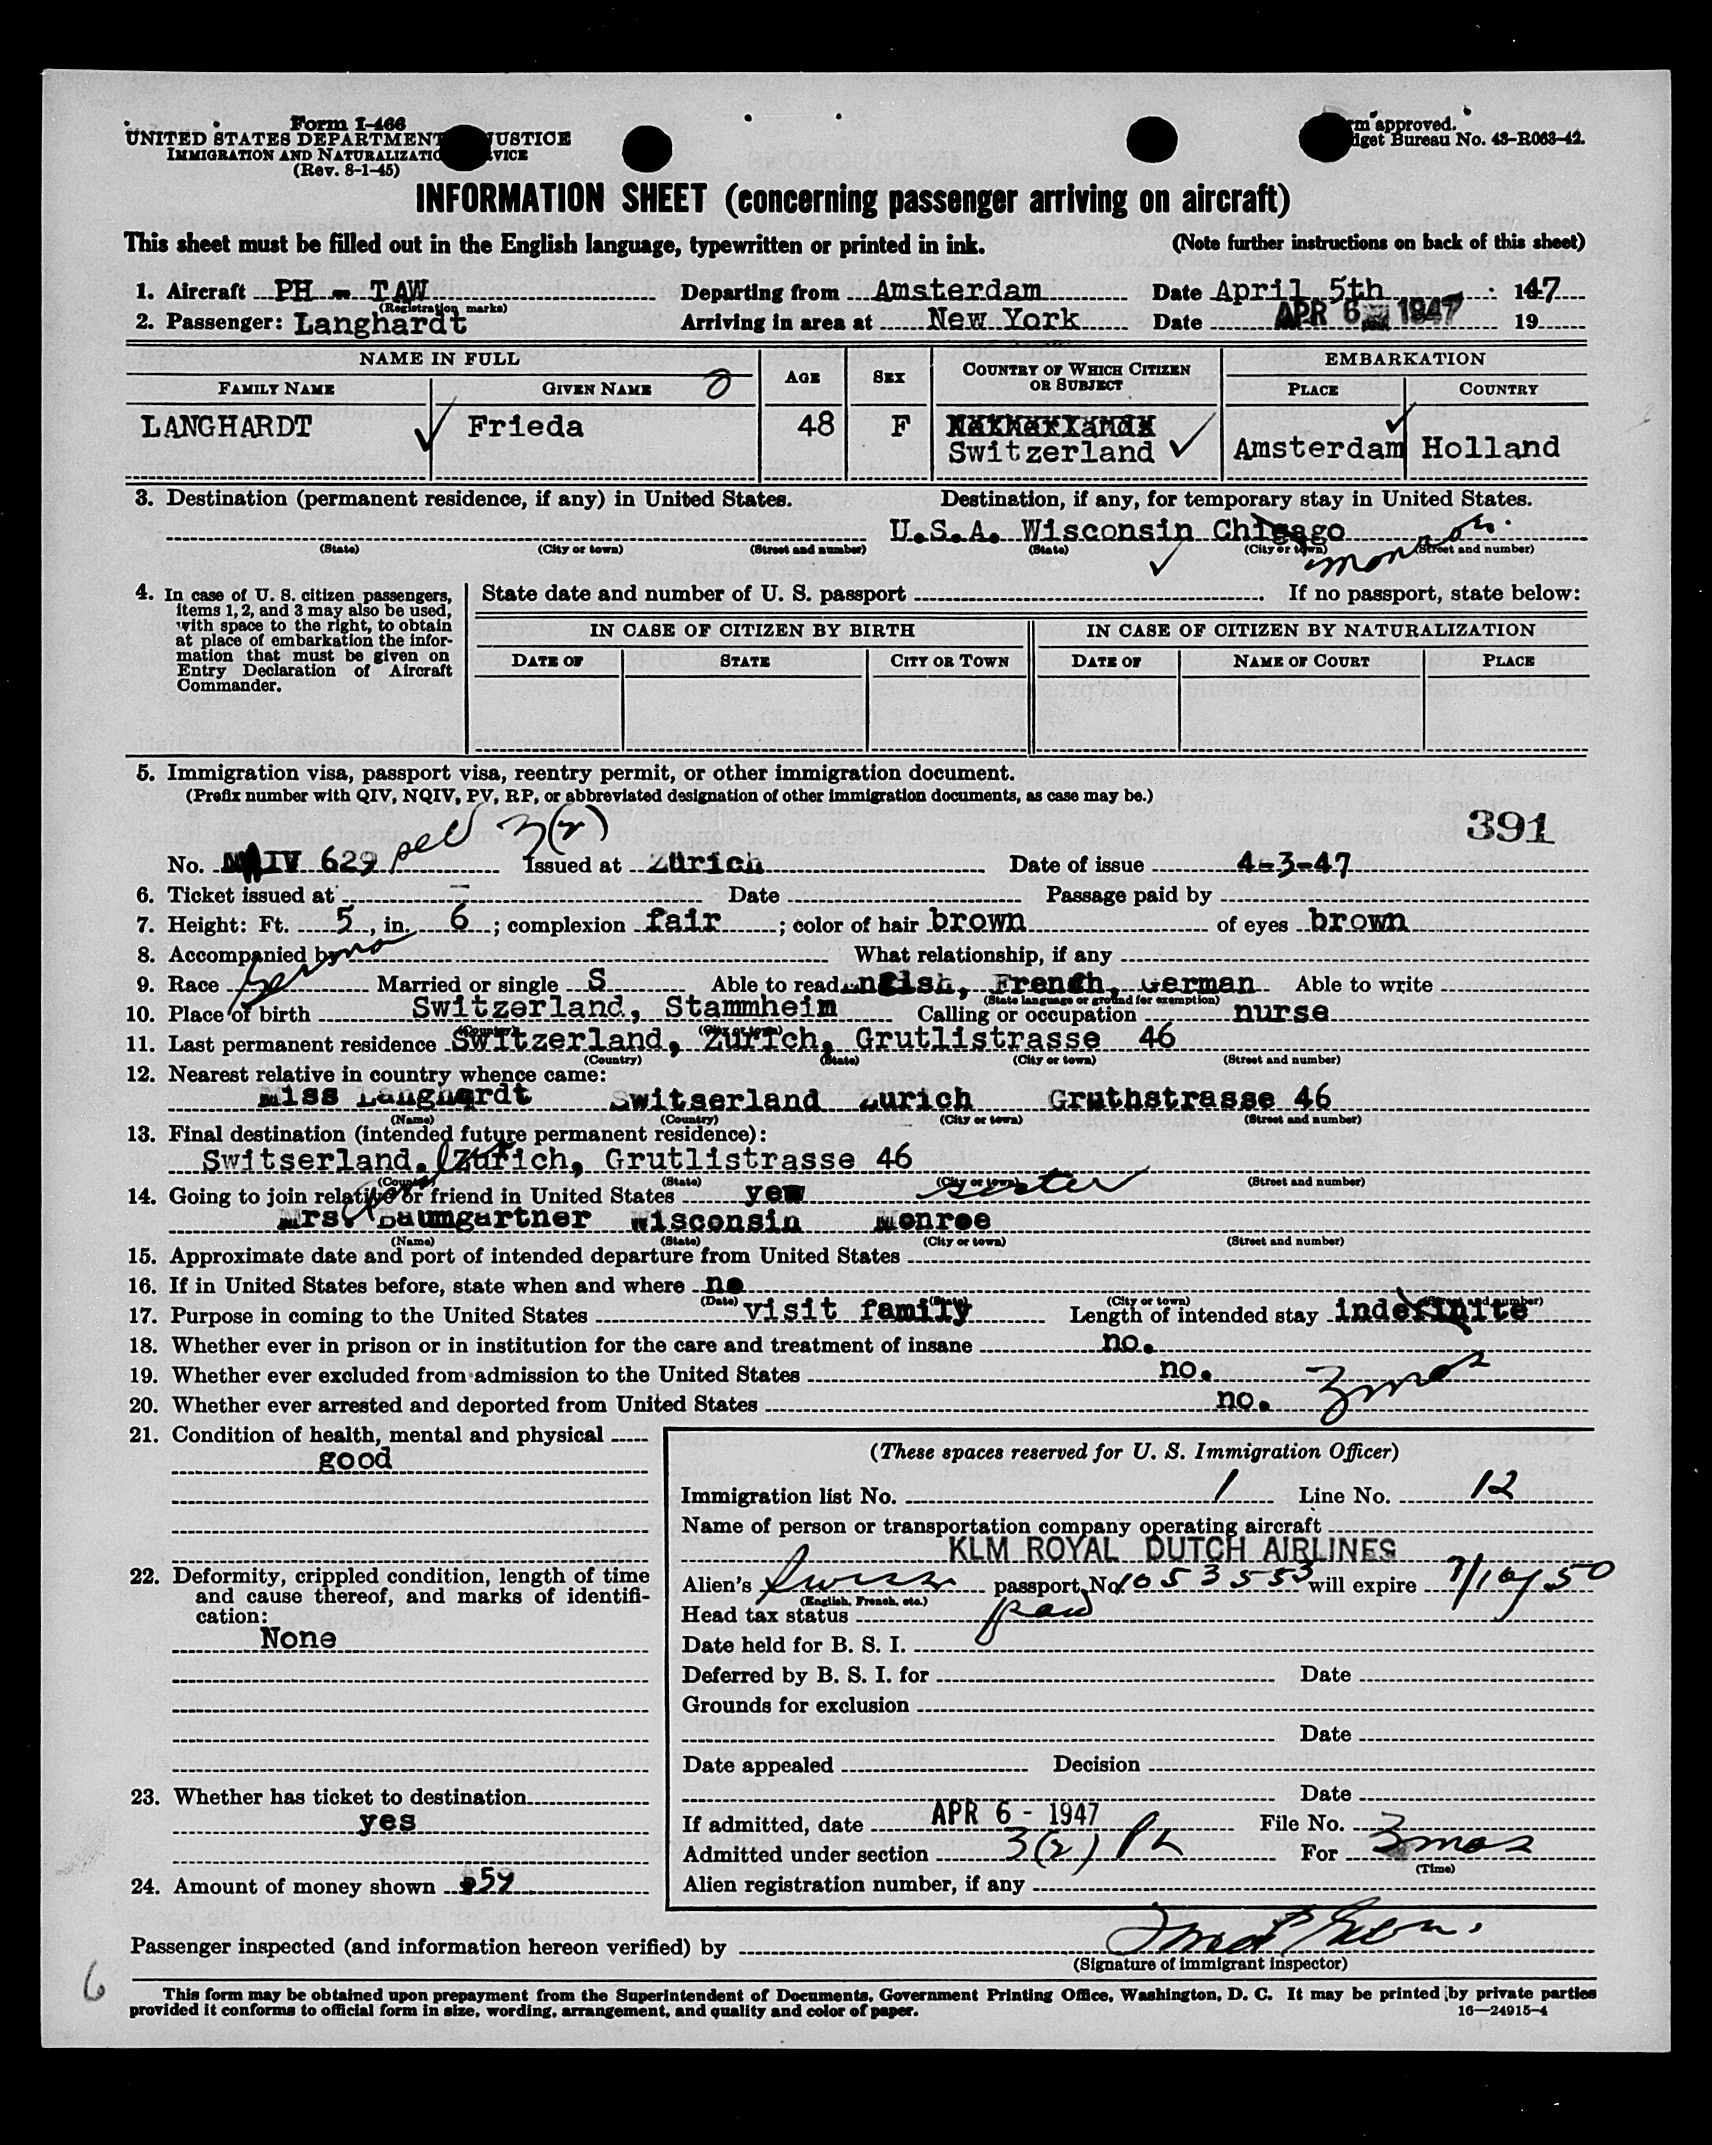 Form I-466
UNITED STATES DEPARTMENT JUSTICE
IMMIGRATION AND NATURALIZATIO VICE
(Rev. 8-1-45)
rm approved.
dget Bureau No. 43-R063-42.
INFORMATION SHEET (concerning passenger arriving on aircraft)
This sheet must be filled out in the English language, typewritten or printed in ink. (Note further instructions on back of this sheet)
1. Aircraft PH - TAW Departing from Amsterdam Date April 5th 1947
(Registration marks)
2. Passenger: Langhardt Arriving in area at New York Date APR 6 1947 19
NAME IN FULL AGE SEX COUNTRY OF WHICH CITIZEN OR SUBJECT EMBARKATION
FAMILY NAME GIVEN NAME PLACE COUNTRY
LANGHARDT Frieda 48 F Netherlands Switzerland Amsterdam Holland
3. Destination (permanent residence, if any) in United States. Destination, if any, for temporary stay in United States.
U.S.A. Wisconsin Chicago
(State) (City or town) (Street and number) (State) (City or town) (Street and number)
4. In case of U. S. citizen passengers, items 1, 2, and 3 may also be used, with space to the right, to obtain at place of embarkation the information that must be given on Entry Declaration of Aircraft Commander.
State date and number of U. S. passport If no passport, state below:
IN CASE OF CITIZEN BY BIRTH IN CASE OF CITIZEN BY NATURALIZATION
DATE OF STATE CITY OR TOWN DATE OF NAME OF COURT PLACE
5. Immigration visa, passport visa, reentry permit, or other immigration document.
(Prefix number with QIV, NQIV, PV, RP, or abbreviated designation of other immigration documents, as case may be.)
3(2) 391
No. IV 629 Issued at Zürich Date of issue 4-3-47
6. Ticket issued at - Date Passage paid by
7. Height: Ft. 5, in. 6; complexion fair; color of hair brown of eyes brown
8. Accompanied by no What relationship, if any
9. Race Married or single S Able to read English, French, German Able to write
(State language or ground for exemption)
10. Place of birth Switzerland, Stammheim Calling or occupation nurse
(Country) (City or town)
11. Last permanent residence Switzerland, Zürich, Grutlistrasse 46
(Country) (State) (City or town) (Street and number)
12. Nearest relative in country whence came:
Miss Langhardt Switserland Zurich Gruthstrasse 46
(Name) (Country) (City or town) (Street and number)
13. Final destination (intended future permanent residence):
Switserland, Zürich, Grutlistrasse 46
(Country) (State) (City or town) (Street and number)
14. Going to join relative or friend in United States yes sister
Mrs. Baumgartner Wisconsin Monroe
(Name) (State) (City or town) (Street and number)
15. Approximate date and port of intended departure from United States
16. If in United States before, state when and where no
(Date) (State) (City or town) (Street and number)
17. Purpose in coming to the United States visit family Length of intended stay indefinite
18. Whether ever in prison or in institution for the care and treatment of insane no.
19. Whether ever excluded from admission to the United States no.
3 mos
20. Whether ever arrested and deported from United States no.
21. Condition of health, mental and physical
good
22. Deformity, crippled condition, length of time and cause thereof, and marks of identification:
None
23. Whether has ticket to destination
yes
24. Amount of money shown
(These spaces reserved for U. S. Immigration Officer)
Immigration list No. 1 Line No. 12
Name of person or transportation company operating aircraft
KLM ROYAL DUTCH AIRLINES
Alien's Swiss passport No. 1053553 will expire
(English, French, etc.)
Head tax status paid
Date held for B. S. I.
Deferred by B. S. I. for Date
Grounds for exclusion
Date
Date appealed Decision
Date
If admitted, date APR 6 - 1947 File No.
Admitted under section 3(2) For 3 mos
(Time)
Alien registration number, if any
Passenger inspected (and information hereon verified) by
(Signature of immigrant inspector)
6
This form may be obtained upon prepayment from the Superintendent of Documents, Government Printing Office, Washington, D. C. It may be printed by private parties
provided it conforms to official form in size, wording, arrangement, and quality and color of paper. 16—24915-4